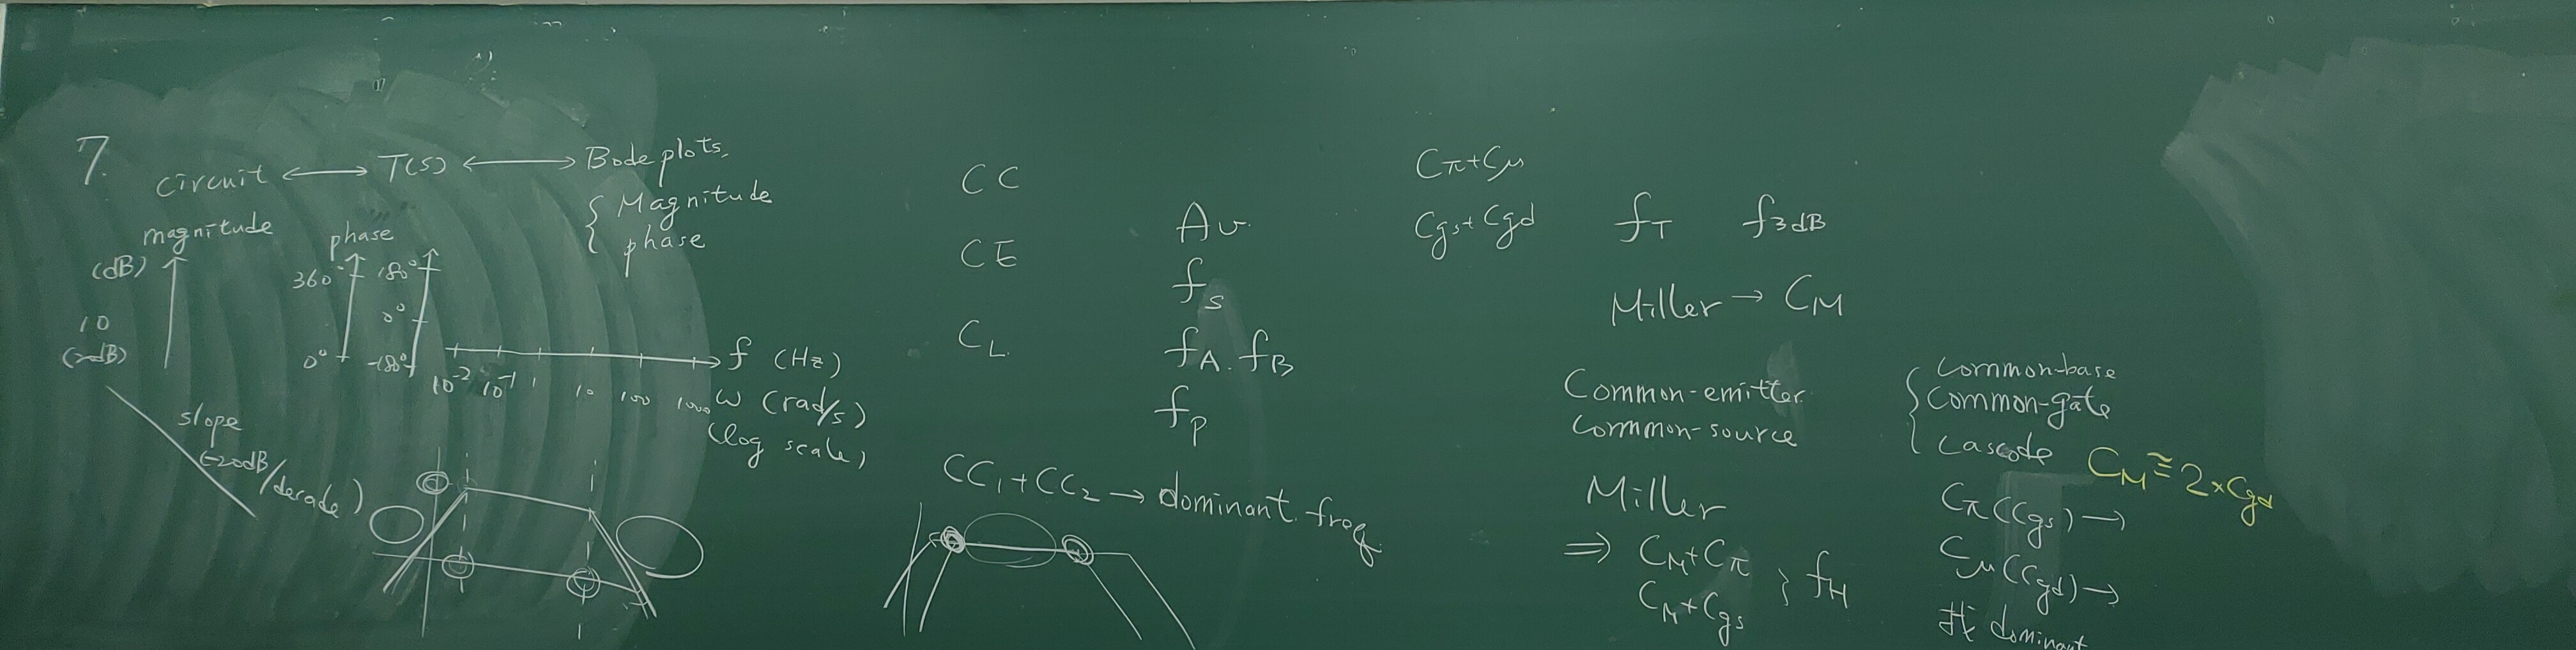 7.
circuit ⟷ T(s) ⟷ Bode plots
{ Magnitude
phase
magnitude
(dB)
10
(20dB)
phase
360°
0°
180°
0°
-180°
10⁻² 10⁻¹ 1 10 100 1000
f (Hz)
ω (rad/s)
(log scale)
slope
(-20dB/decade)
CC
CE
CL
Av
fs
fA. fB
fp
CC₁+CC₂ → dominant freq.
Cπ+Cμ
Cgs+Cgd fT f3dB
Miller → CM
Common-emitter
Common-source
Miller
⇒ CM+Cπ
CM+Cgs
} fH
{ Common-base
Common-gate
Cascode CM ≅ 2×Cgd
Cπ(Cgs) →
Cμ(Cgd) →
dominant